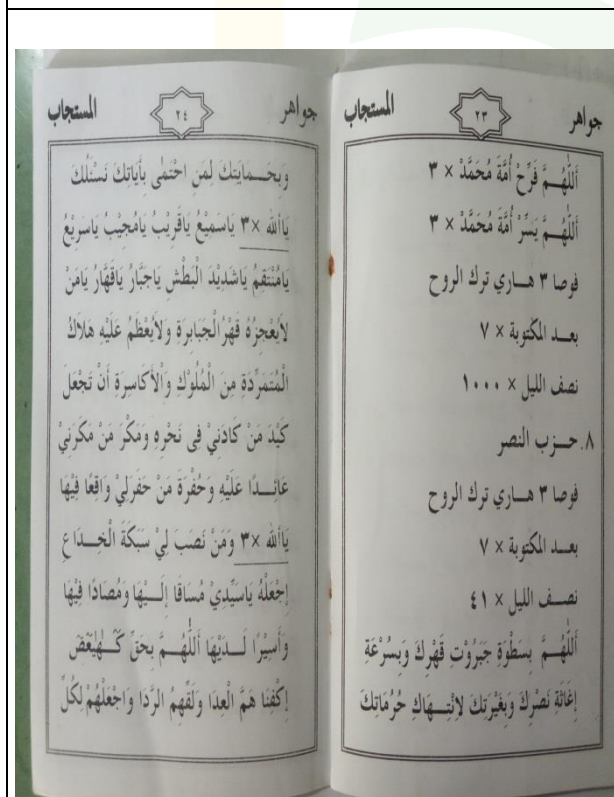 جواهر ٢٣ المستجاب
أَللّٰهُــمَّ فَرِّحْ أُمَّةَ مُحَمَّدْ × ٣
أَللّٰهُــمَّ يَسِّرْ أُمَّةَ مُحَمَّدْ × ٣
فوصا ٣ هــاري ترك الروح
بعــد المكتوبة × ٧
نصف الليل × ١٠٠٠
٨. حــزب النصر
فوصا ٣ هــاري ترك الروح
بعــد المكتوبة × ٧
نصــف الليل × ٤١
أَللّٰهُــمَّ بِسَطْوَةِ جَبَرُوْتِ قَهْرِكَ وَبِسُرْعَةِ
إِغَاثَةِ نَصْرِكَ وَبِغَيْرَتِكَ لِانْتِــهَاكِ حُرُمَاتِكَ
جواهر ٢٤ المستجاب
وَبِحَــمَايَتِكَ لِمَنِ احْتَمٰى بِأَيَاتِكَ نَسْئَلُكَ
يَاأَلله ×٣ يَاسَمِيْعُ يَاقَرِيْبُ يَامُجِيْبُ يَاسَرِيْعُ
يَامُنْتَقِمُ يَاشَدِيْدَ الْبَطْشِ يَاجَبَّارُ يَاقَهَّارُ يَامَنْ
لَايُعْجِزُهُ قَهْرُ الْجَبَابِرَةِ وَلَايُعْظَمُ عَلَيْهِ هَلَاكُ
الْمُتَمَرِّدَةِ مِنَ الْمُلُوْكِ وَالْأَكَاسِرَةِ أَنْ تَجْعَلَ
كَيْدَ مَنْ كَادَنِيْ فِى نَحْرِهِ وَمَكْرَ مَنْ مَكَرَنِيْ
عَائِــدًا عَلَيْهِ وَحُفْرَةَ مَنْ حَفَرَلِيْ وَاقِعًا فِيْهَا
يَاأَلله ×٣ وَمَنْ نَصَبَ لِيْ سَبَكَةَ الْخِــدَاعِ
إِجْعَلْهُ يَاسَيِّدِيْ مُسَاقًا إِلَــيْهَا وَمُصَادًا فِيْهَا
وَأَسِيْرًا لَــدَيْهَا أَللّٰهُــمَّ بِحَقِّ كَــهٰيٰعٓصٓ
إِكْفِنَا هَمَّ الْعِدَا وَلَقِّهِمُ الرَّدَا وَاجْعَلْهُمْ لِكُلِّ